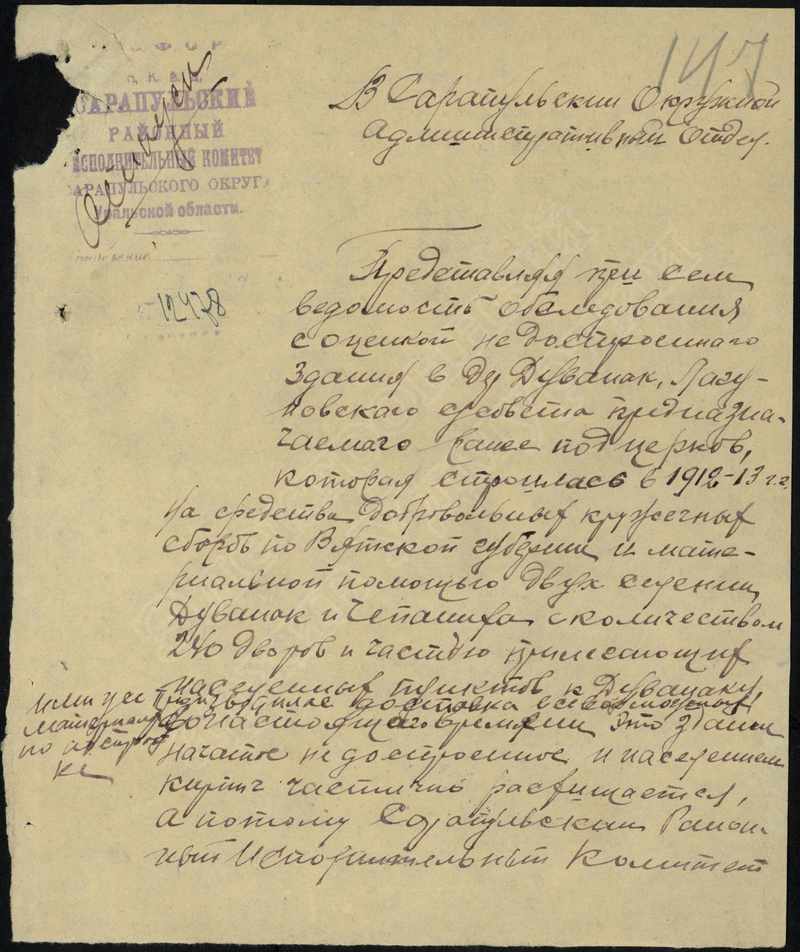 147
САРАПУЛЬСКИЙ
РАЙОННЫЙ
ИСПОЛНИТЕЛЬНЫЙ КОМИТЕТ
САРАПУЛЬСКОГО ОКРУГА
Уральской области.
12478
В Сарапульский Окружной
Административный Отдел.
Представляя при сем
ведомость обследования
с оценкой недостроеннаго
здания в дер Дуванак, Лагу-
новскаго сельсовета предназна-
чаемаго ранее под церковь,
которая строилась в 1912-13 г.г.
на средства добровольных кружечных
сборов по Вятской губернии и мате-
риальной помощью двух селении
Дуванак и Чепаниха с количеством
240 дворов и частью прилегающих
населенных пунктов к Дуванаку,
ими же производилась доставка всевозможных
материалов
по постройке
До настоящего времени это здание
начатое недостроенное и населением
кирпич частично расхищается,
а потому Сарапульский Район-
ный Исполнительный Комитет